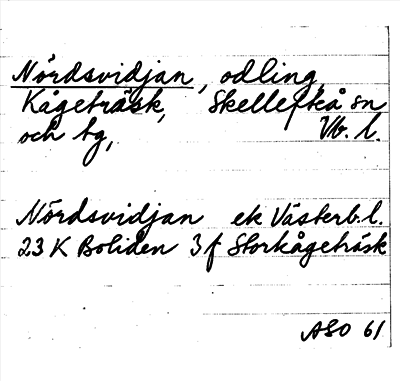 Nördsvidjan, odling,
Kågeträsk, Skellefteå sn
och tg, Vb. l.
Nördsvidjan ek Västerb. l.
23 K Boliden 3 f Storkågeträsk
ASO 61